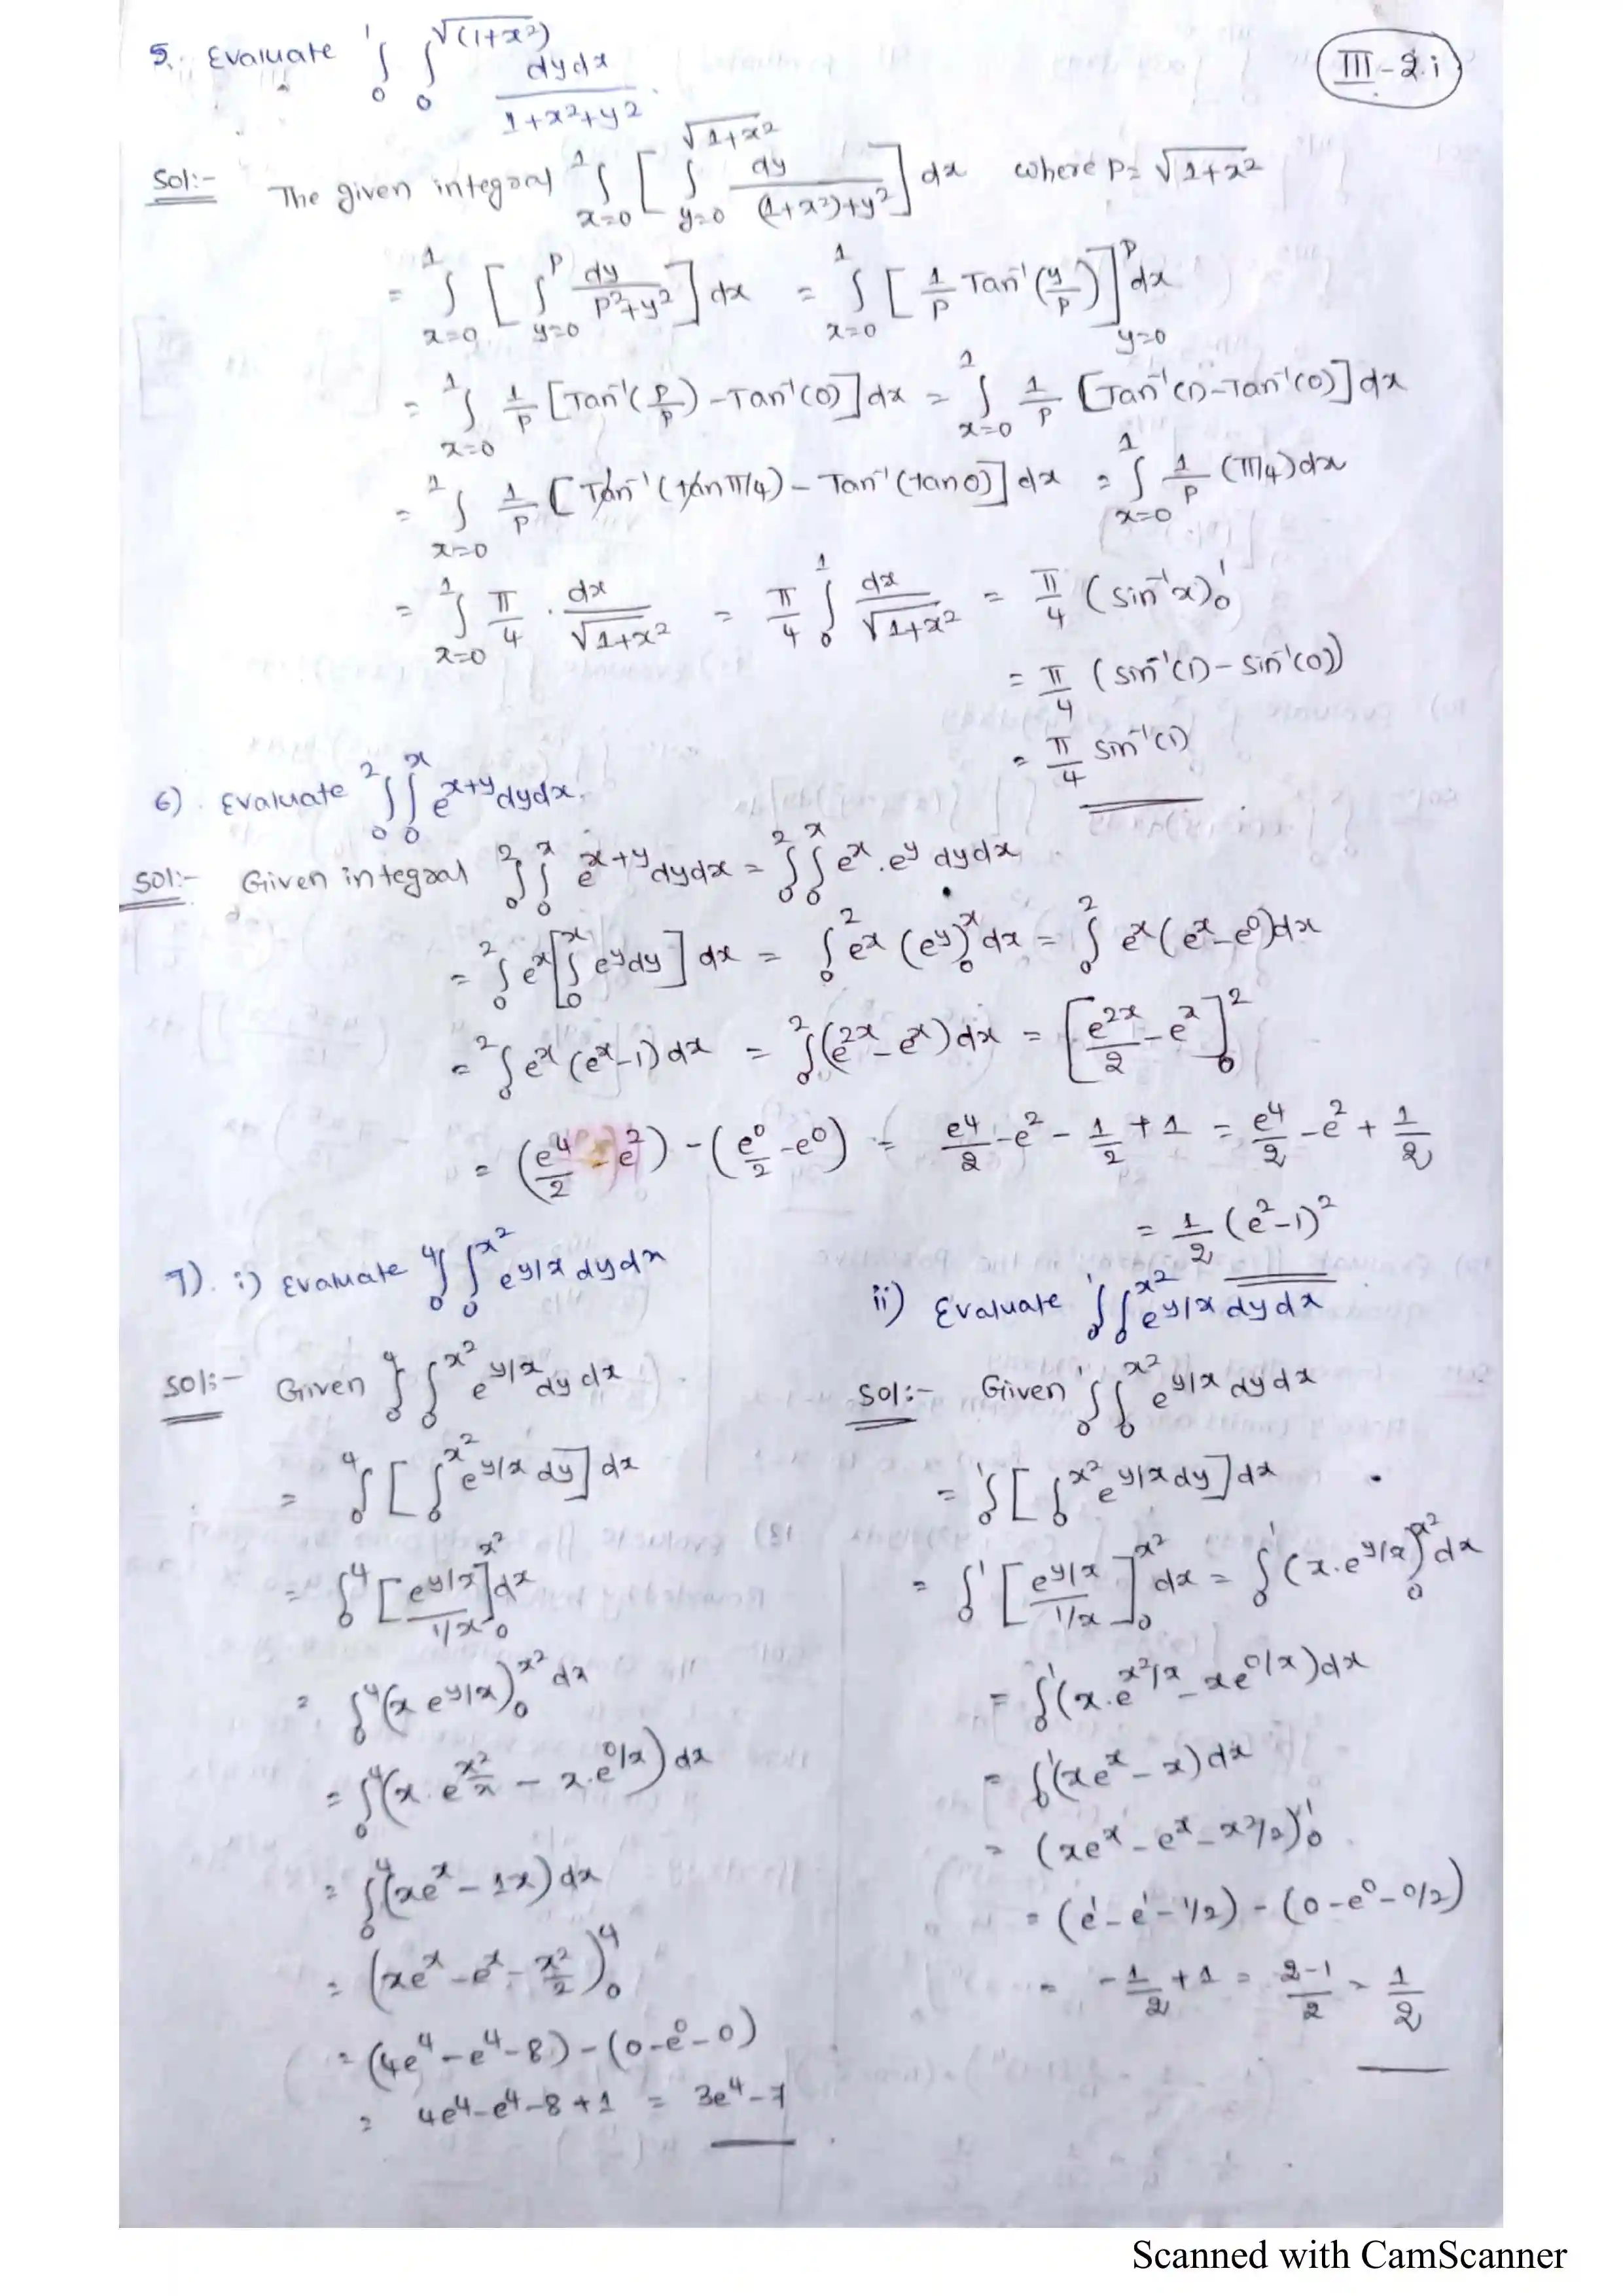 5. Evaluate ∫₀¹ ∫₀^√(1+x²) dydx / 1+x²+y².
III - 2.i
Sol:- The given integral ∫_{x=0}^1 [ ∫_{y=0}^{√1+x²} dy / (1+x²)+y² ] dx where P = √1+x²
= ∫_{x=0}^1 [ ∫_{y=0}^P dy / P²+y² ] dx = ∫_{x=0}^1 [ 1/P Tan⁻¹(y/P) ]_{y=0}^P dx
= ∫_{x=0}^1 1/P [Tan⁻¹(P/P) - Tan⁻¹(0)] dx = ∫_{x=0}^1 1/P [Tan⁻¹(1) - Tan⁻¹(0)] dx
= ∫_{x=0}^1 1/P [Tan⁻¹(tan π/4) - Tan⁻¹(tan 0)] dx = ∫_{x=0}^1 1/P (π/4) dx
= ∫_{x=0}^1 π/4 · dx/√1+x² = π/4 ∫₀¹ dx/√1+x² = π/4 (sin⁻¹x)₀¹
= π/4 (sin⁻¹(1) - sin⁻¹(0))
= π/4 sin⁻¹(1)
6). Evaluate ∫₀² ∫₀ˣ e^{x+y} dydx.
Sol:- Given integral ∫₀² ∫₀ˣ e^{x+y} dydx = ∫₀² ∫₀ˣ eˣ.e^y dydx
= ∫₀² eˣ [ ∫₀ˣ e^y dy ] dx = ∫₀² eˣ (e^y)₀ˣ dx = ∫₀² eˣ (eˣ - e⁰) dx
= ∫₀² eˣ (eˣ - 1) dx = ∫₀² (e^{2x} - eˣ) dx = [ e^{2x}/2 - eˣ ]₀²
= (e⁴/2 - e²) - (e⁰/2 - e⁰) = e⁴/2 - e² - 1/2 + 1 = e⁴/2 - e² + 1/2
= 1/2 (e² - 1)²
7). i) Evaluate ∫₀⁴ ∫₀^{x²} e^{y/x} dydx
Sol:- Given ∫₀⁴ ∫₀^{x²} e^{y/x} dy dx
= ∫₀⁴ [ ∫₀^{x²} e^{y/x} dy ] dx
= ∫₀⁴ [ e^{y/x} / 1/x ]₀^{x²} dx
= ∫₀⁴ (x e^{y/x})₀^{x²} dx
= ∫₀⁴ (x.e^{x²/x} - x.e^{0/x}) dx
= ∫₀⁴ (xeˣ - 1x) dx
= (xeˣ - eˣ - x²/2)₀⁴
= (4e⁴ - e⁴ - 8) - (0 - e⁰ - 0)
= 4e⁴ - e⁴ - 8 + 1 = 3e⁴ - 7
ii) Evaluate ∫₀¹ ∫₀^{x²} e^{y/x} dy dx
Sol:- Given ∫₀¹ ∫₀^{x²} e^{y/x} dy dx
= ∫₀¹ [ ∫₀^{x²} e^{y/x} dy ] dx
= ∫₀¹ [ e^{y/x} / 1/x ]₀^{x²} dx = ∫₀¹ (x.e^{y/x})₀^{x²} dx
= ∫₀¹ (x.e^{x²/x} - xe^{0/x}) dx
= ∫₀¹ (xeˣ - x) dx
= (xeˣ - eˣ - x²/2)₀¹
= (e¹ - e¹ - 1/2) - (0 - e⁰ - 0/2)
= -1/2 + 1 = 2-1/2 = 1/2
Scanned with CamScanner